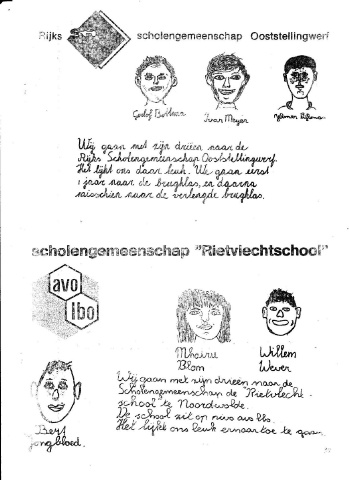 Rijks scholengemeenschap Ooststellingwerf
Ivar Meyer
Wij gaan met zijn drieën naar de
Rijks Scholengemeenschap Ooststellingwerf.
Het lijkt ons daar leuk. We gaan eerst
1 jaar naar de brugklas, en daarna
misschien naar de verlengde brugklas.
scholengemeenschap "Rietvlechtschool"
avo
lbo
Willem
Blom Wever
Wij gaan met zijn drieën naar de
Scholengemeenschap de Rietvlecht-
school te Noordwolde.
De school zit op
Het lijkt ons leuk ernaar toe te gaan.
Bert
Jongbloed.